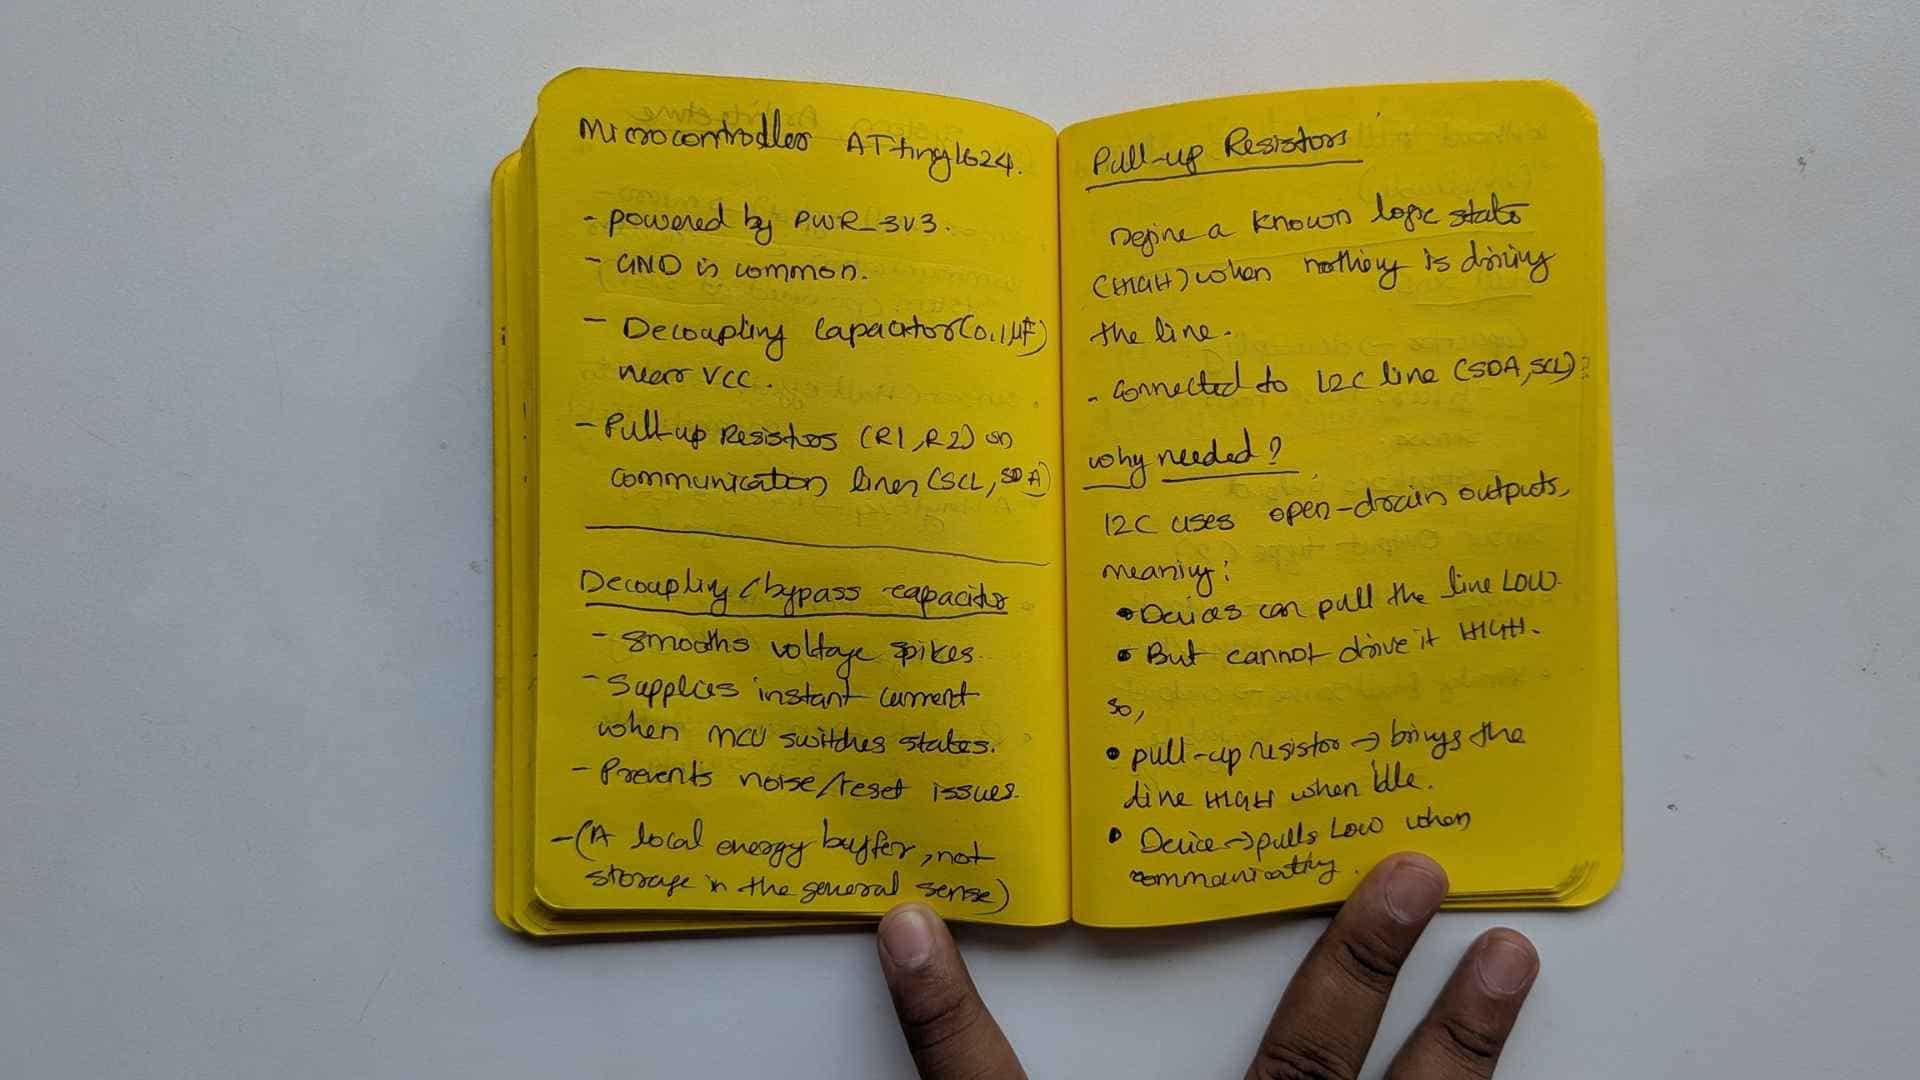 Microcontroller ATtiny1624.
- powered by PWR_3V3.
- GND is common.
- Decoupling Capacitor (0.1µF)
near VCC.
- Pull-up Resistors (R1, R2) on
communication lines (SCL, SDA)
Decoupling / bypass capacitor
- Smooths voltage spikes.
- Supplies instant current
when MCU switches states.
- Prevents noise/reset issues.
- (A local energy buffer, not
storage in the general sense)
Pull-up Resistors
Define a known logic state
(HIGH) when nothing is driving
the line.
- connected to I2C line (SDA, SCL)
why needed?
I2C uses open-drain outputs,
meaning:
• Devices can pull the line LOW.
• But cannot drive it HIGH.
so,
• pull-up resistor → brings the
line HIGH when Idle.
• Device → pulls LOW when
communicating.